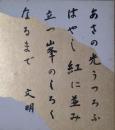 あさの光うつろふ
はやし紅に並み
立つ峯のしろく
なるまで　文明